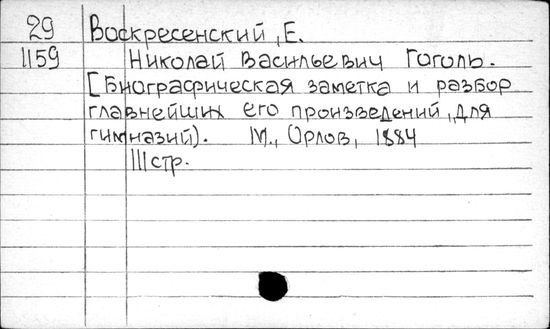 29 Воскресенский, Е.
1159 Николай Васильевич Гоголь.
[Биографическая заметка и разбор
главнейших его произведений, для
гимназий). М., Орлов, 1884
111 стр.